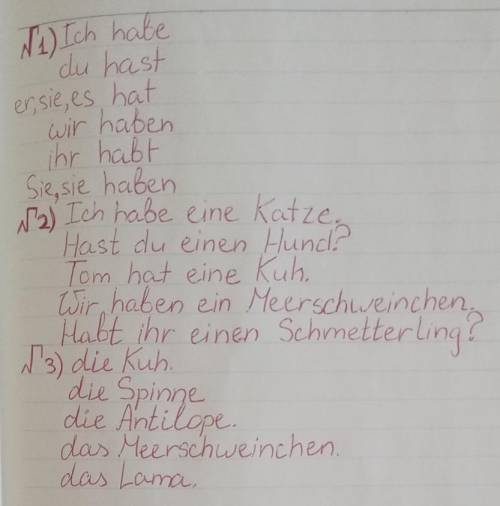 №1) Ich habe
du hast
er, sie, es hat
wir haben
ihr habt
Sie, sie haben
№2) Ich habe eine Katze.
Hast du einen Hund?
Tom hat eine Kuh.
Wir haben ein Meerschweinchen.
Habt ihr einen Schmetterling?
№3) die Kuh.
die Spinne
die Antilope.
das Meerschweinchen.
das Lama.